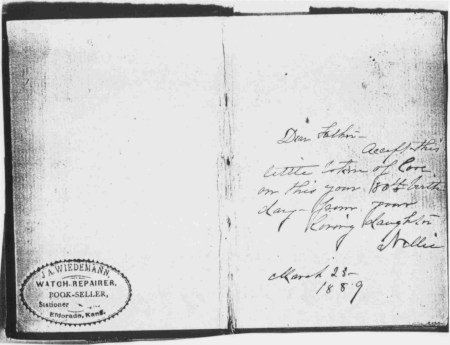 J. A. WIEDEMANN,
WATCH-REPAIRER,
BOOK-SELLER,
Stationer
Eldorado, Kans.
Dear Father-
Accept this
little token of Love
on this your 80th birth
day- from your
loving daughter
Nellie
March 23-
1889